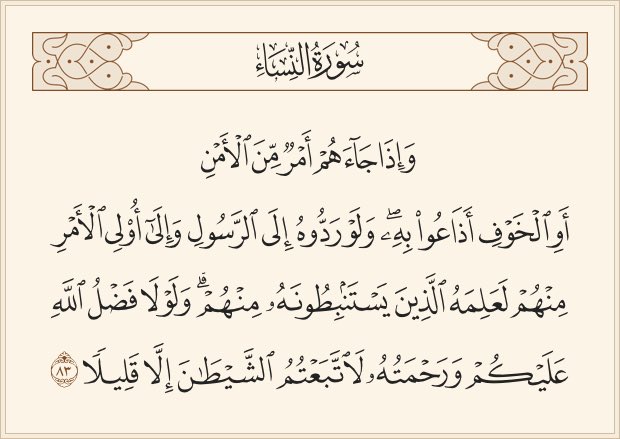 سُورَةُ النِّسَاءِ
وَإِذَا جَآءَهُمْ أَمْرٌ مِّنَ ٱلْأَمْنِ
أَوِ ٱلْخَوْفِ أَذَاعُوا۟ بِهِۦ ۖ وَلَوْ رَدُّوهُ إِلَى ٱلرَّسُولِ وَإِلَىٰٓ أُو۟لِى ٱلْأَمْرِ
مِنْهُمْ لَعَلِمَهُ ٱلَّذِينَ يَسْتَنۢبِطُونَهُۥ مِنْهُمْ ۗ وَلَوْلَا فَضْلُ ٱللَّهِ
عَلَيْكُمْ وَرَحْمَتُهُۥ لَٱتَّبَعْتُمُ ٱلشَّيْطَـٰنَ إِلَّا قَلِيلًا ٨٣